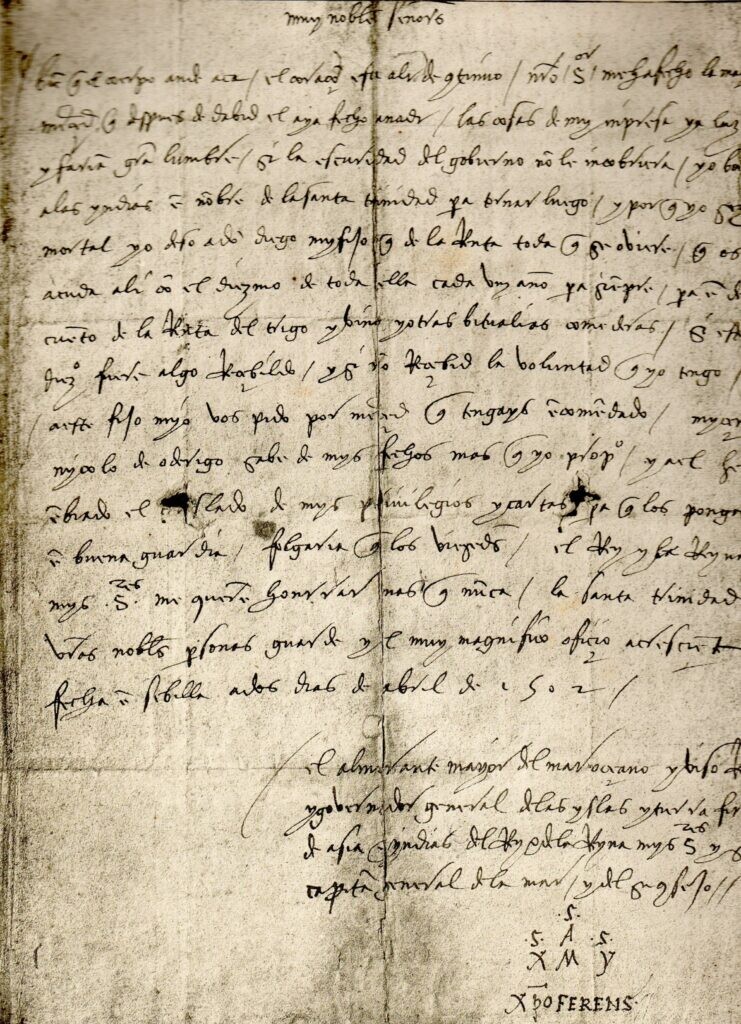 muy nobles señors
bien q el cuerpo ande aca / el coraçon esta ali de contino / nro S.or me ha fecho la ma
merçed q despues de dabid el aya fecho a nadie / las cosas de my inpresa ya luz
y farian gran lumbre / si la escuridad del gobierno non le incobriera / yo bo
a las yndias en nōbre de la santa trinidad pa tornar luego / y por q yo soy
mortal yo dexo a dō diego my fijo q de la Renta toda q se oviere / q os
acuda ali cō el diezmo de toda ella cada un año pa sienpre / pa en de
cuento de la Renta del trigo y vino y otras bitualias comederas / si este
diezo fuere algo Reçebildo / y si no Reçebid la voluntad q yo tengo /
a este fijo myo vos pido por merçed q tengays encomendado / myçer
nycolo de oderigo sabe de mys fechos mas q yo propo / y a el he
enbiado el traslado de mys privilegios y cartas pa q los ponga
en buena guardia / folgaria q los vieseds / el Rey y la Reyna
mys .S.res me quieren honrrar mas q nūca / la santa trinidad
vras nobles personas guarde y el muy magnifico ofiçio acresciente
fecha en sebilla a dos dias de abril de 1502 /
el almirante mayor del mar oçeano y viso R
y gobernador general de las yslas y tierra fir
de asia e yndias del Rey e de la Reyna mys S.res y s
capitan general de la mar / y del su qsejo //
.S.
.S. A .S.
X M Y
Xpo FERENS